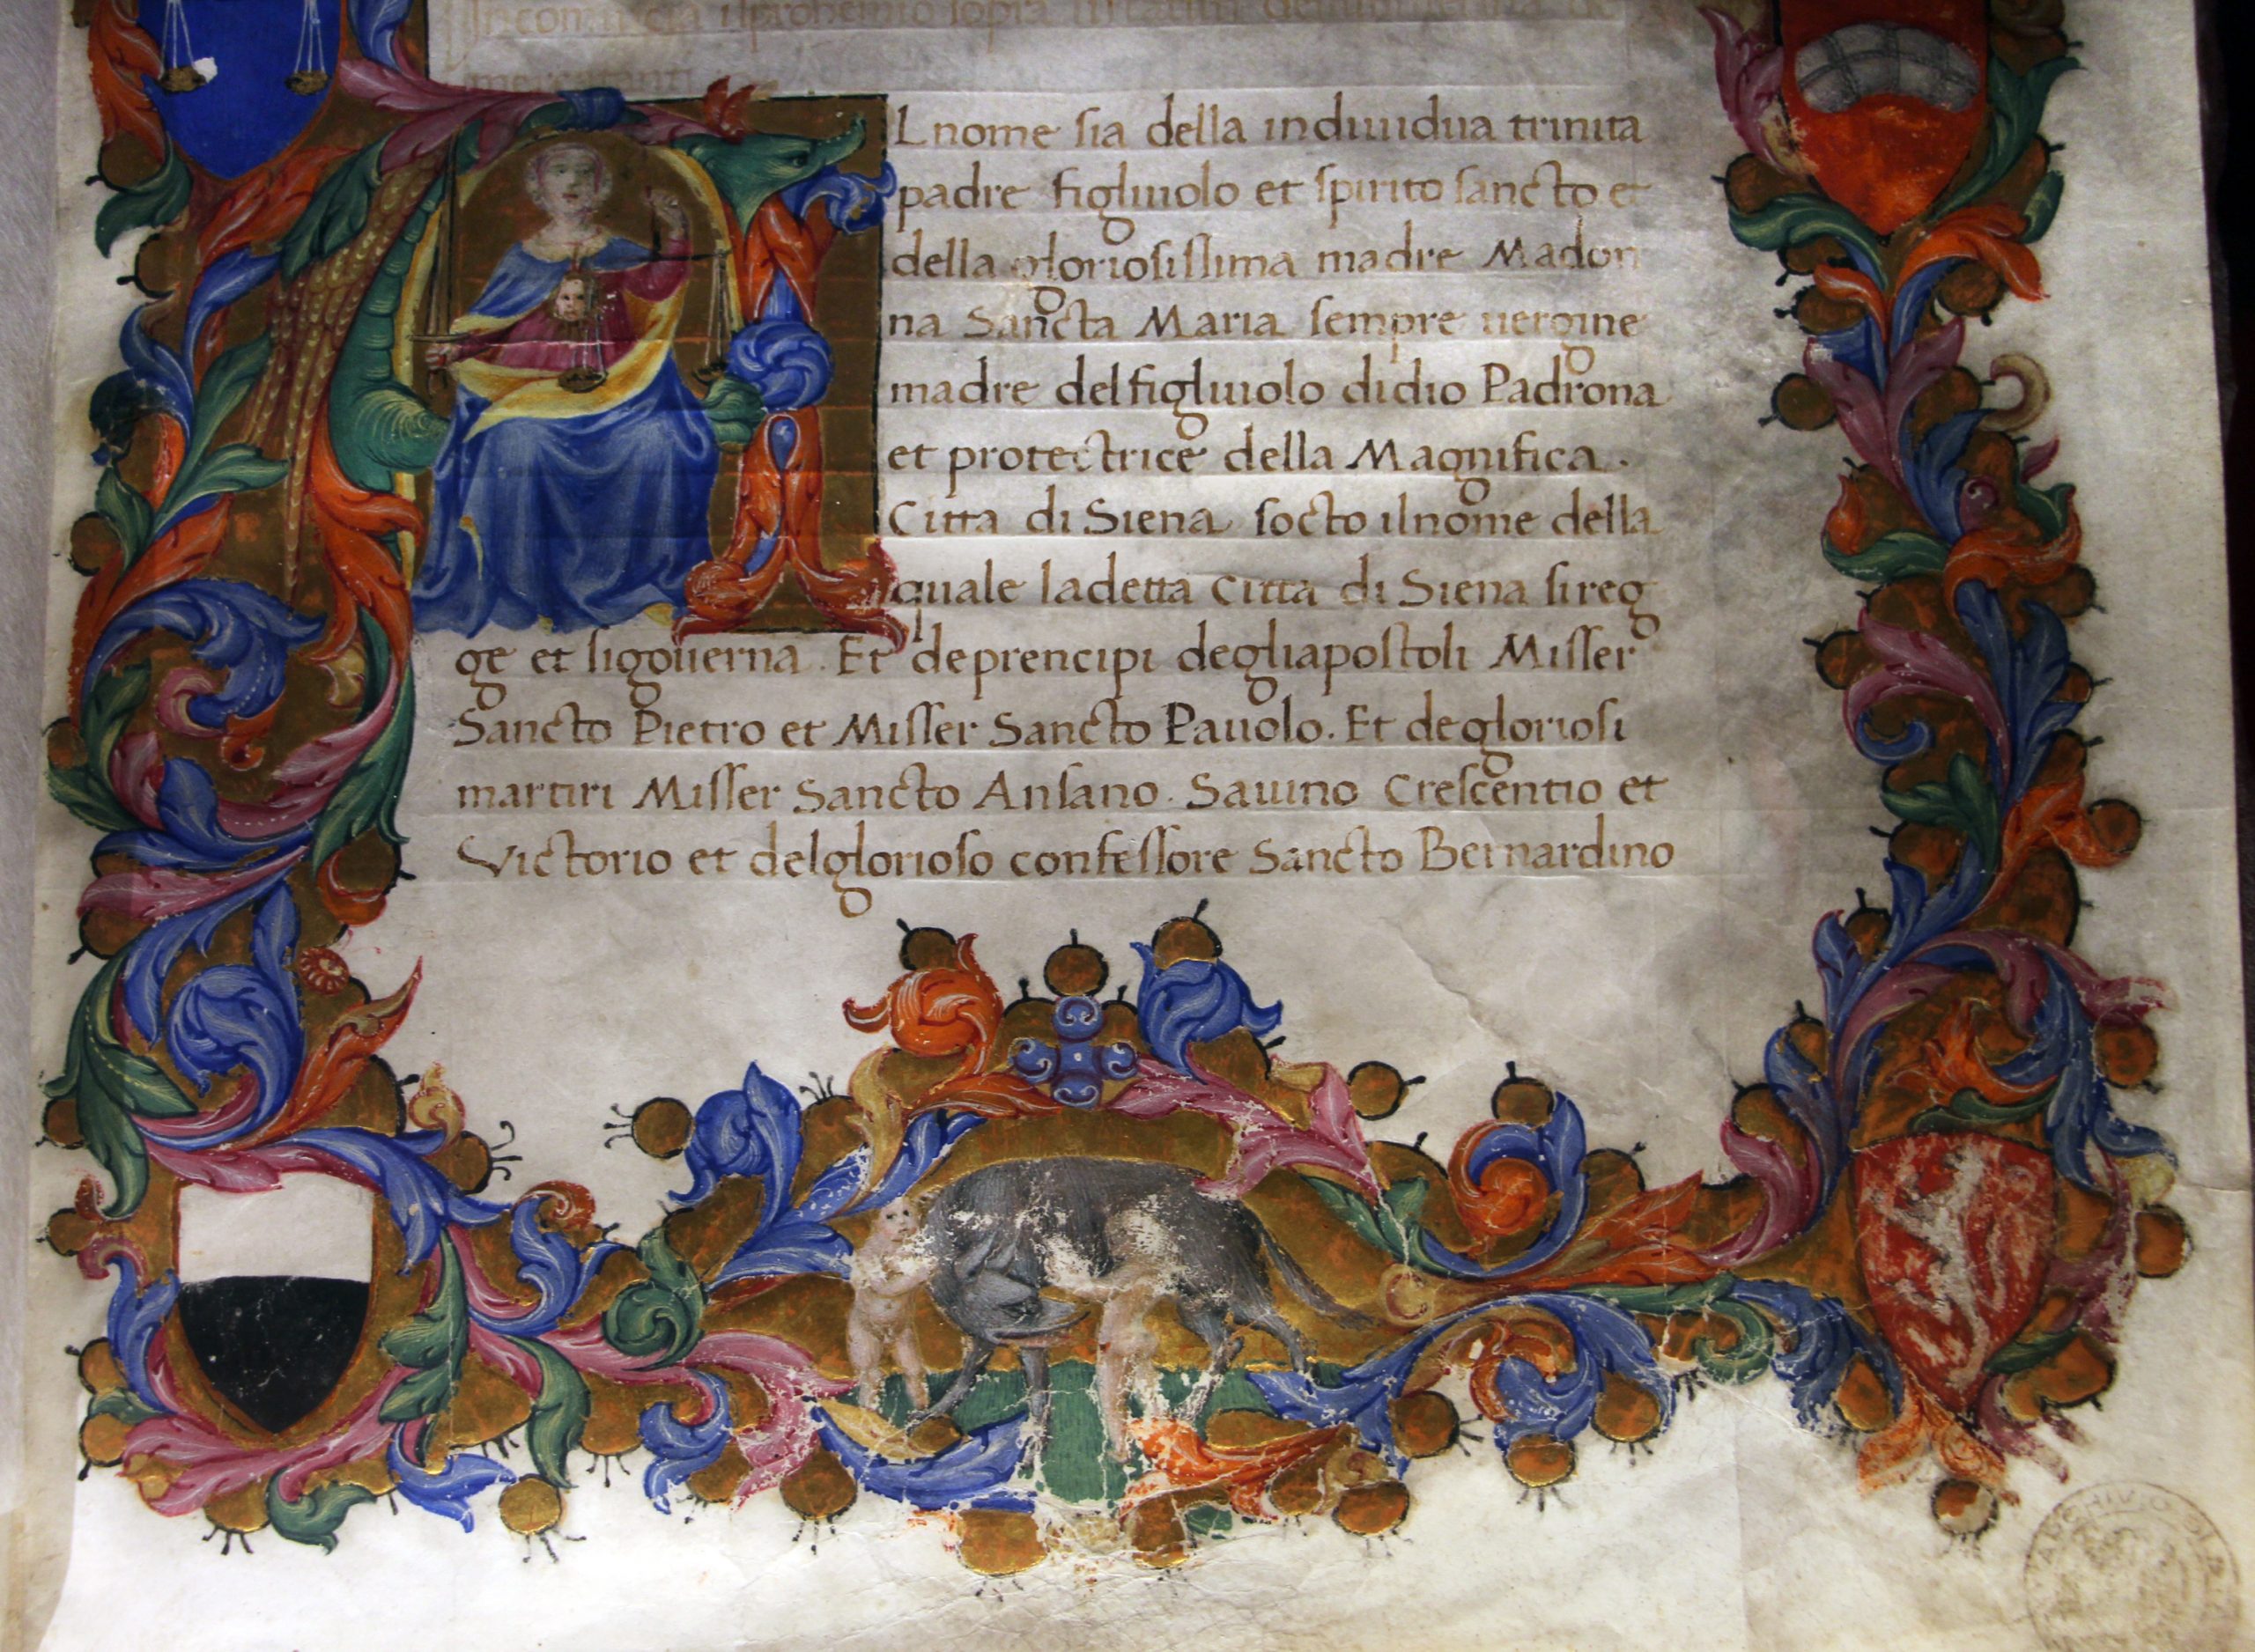 Incomincia ilprohemio sopra
mercatanti
Lnome sia della indiuidua trinita
padre figliuolo et spirito sancto et
della gloriosissima madre Madon
na Sancta Maria sempre uergine
madre delfigliuolo didio Padrona
et protectrice della Magnifica .
Citta di Siena socto ilnome della
quale ladetta citta di Siena sireg
ge et sigouerna . Et deprencipi degliapostoli Misser
Sancto Pietro et Misser Sancto Pauolo . Et degloriosi
martiri Misser Sancto Ansano . Sauino Crescentio et
Victorio et delglorioso confessore Sancto Bernardino
ARCHIVIO DI